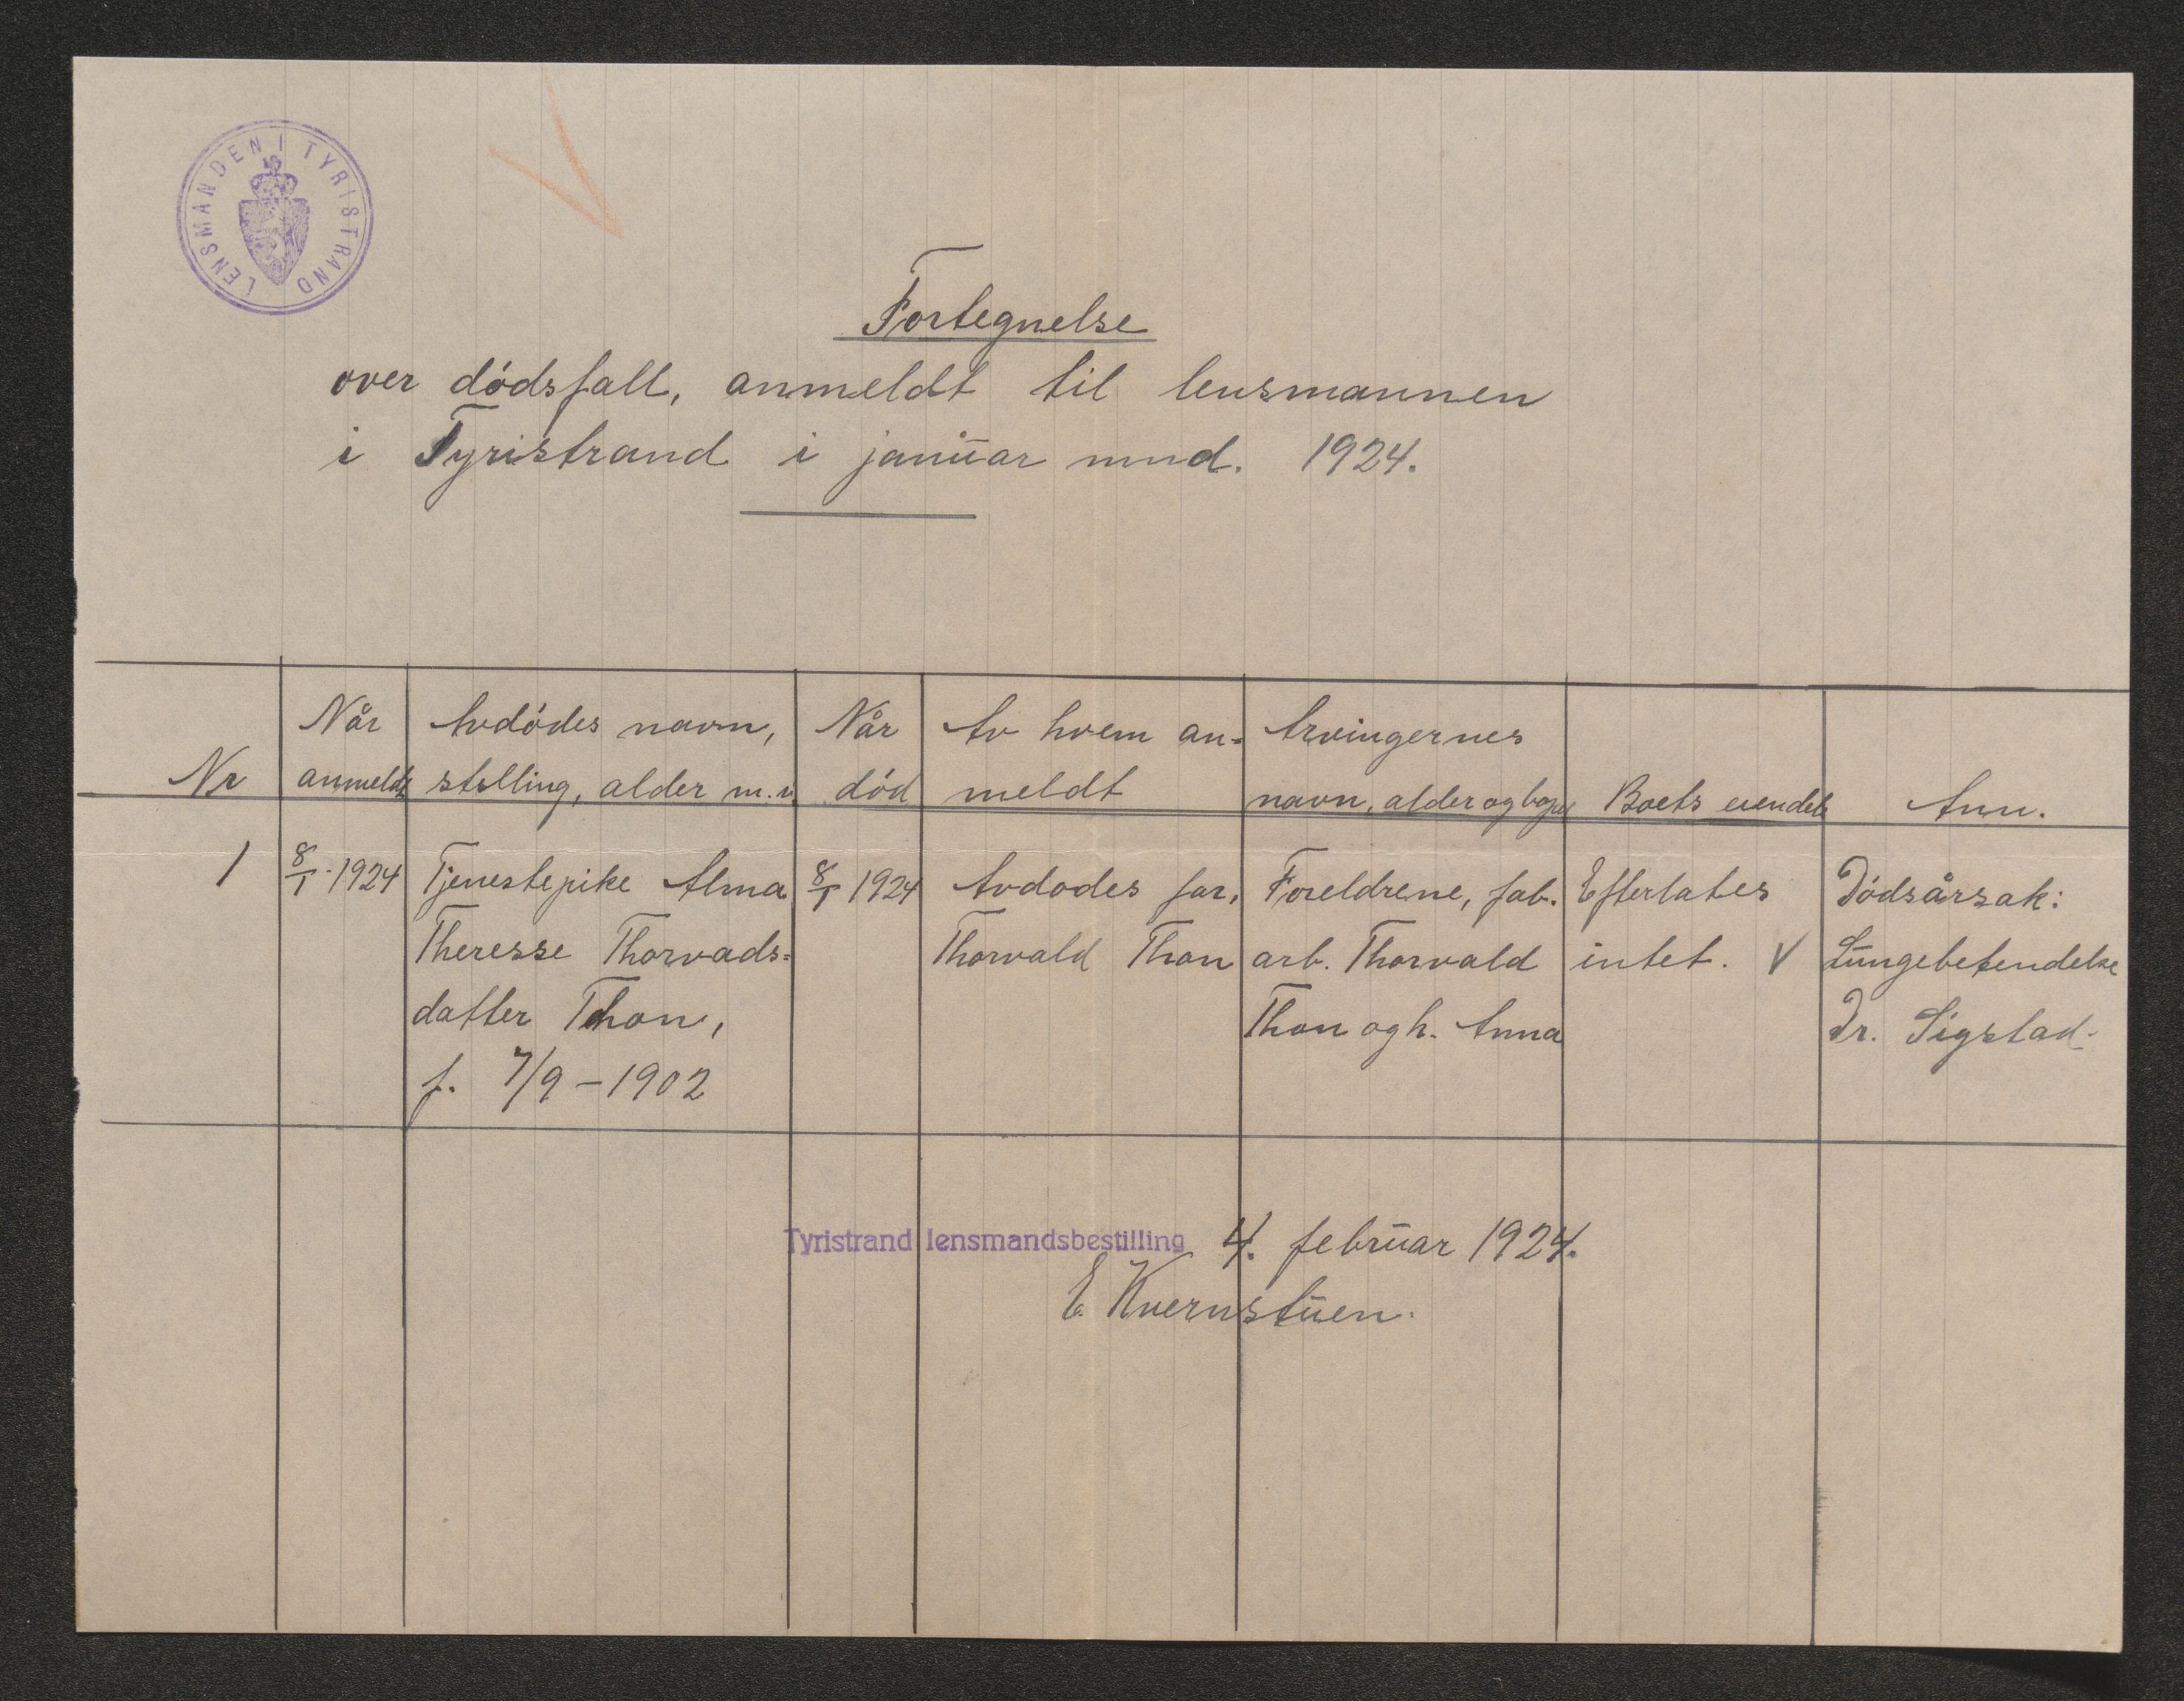 LENSMANDEN I TYRISTRAND
Fortegnelse
over dødsfall, anmeldt til lensmannen
i Tyristrand i januar mnd. 1924.
Nr
Når
anmeldt
Avdødes navn,
stilling, alder m.v.
Når
død
Av hvem an-
meldt
Arvingernes
navn, alder og bopel
Boets eiendele
Anm.
1
8/1-1924
Tjenestepike Alma
Theresse Thorvads-
datter Thon,
f. 7/9-1902
8/1 1924
Avdødes far,
Thorvald Thon
Foreldrene, fab.
arb. Thorvald
Thon og h. Anna
Efterlates
intet. V
Dødsårsak:
Lungebetendelse
Dr. Sigstad.
Tyristrand lensmandsbestilling 4. februar 1924.
E. Kvernstuen.